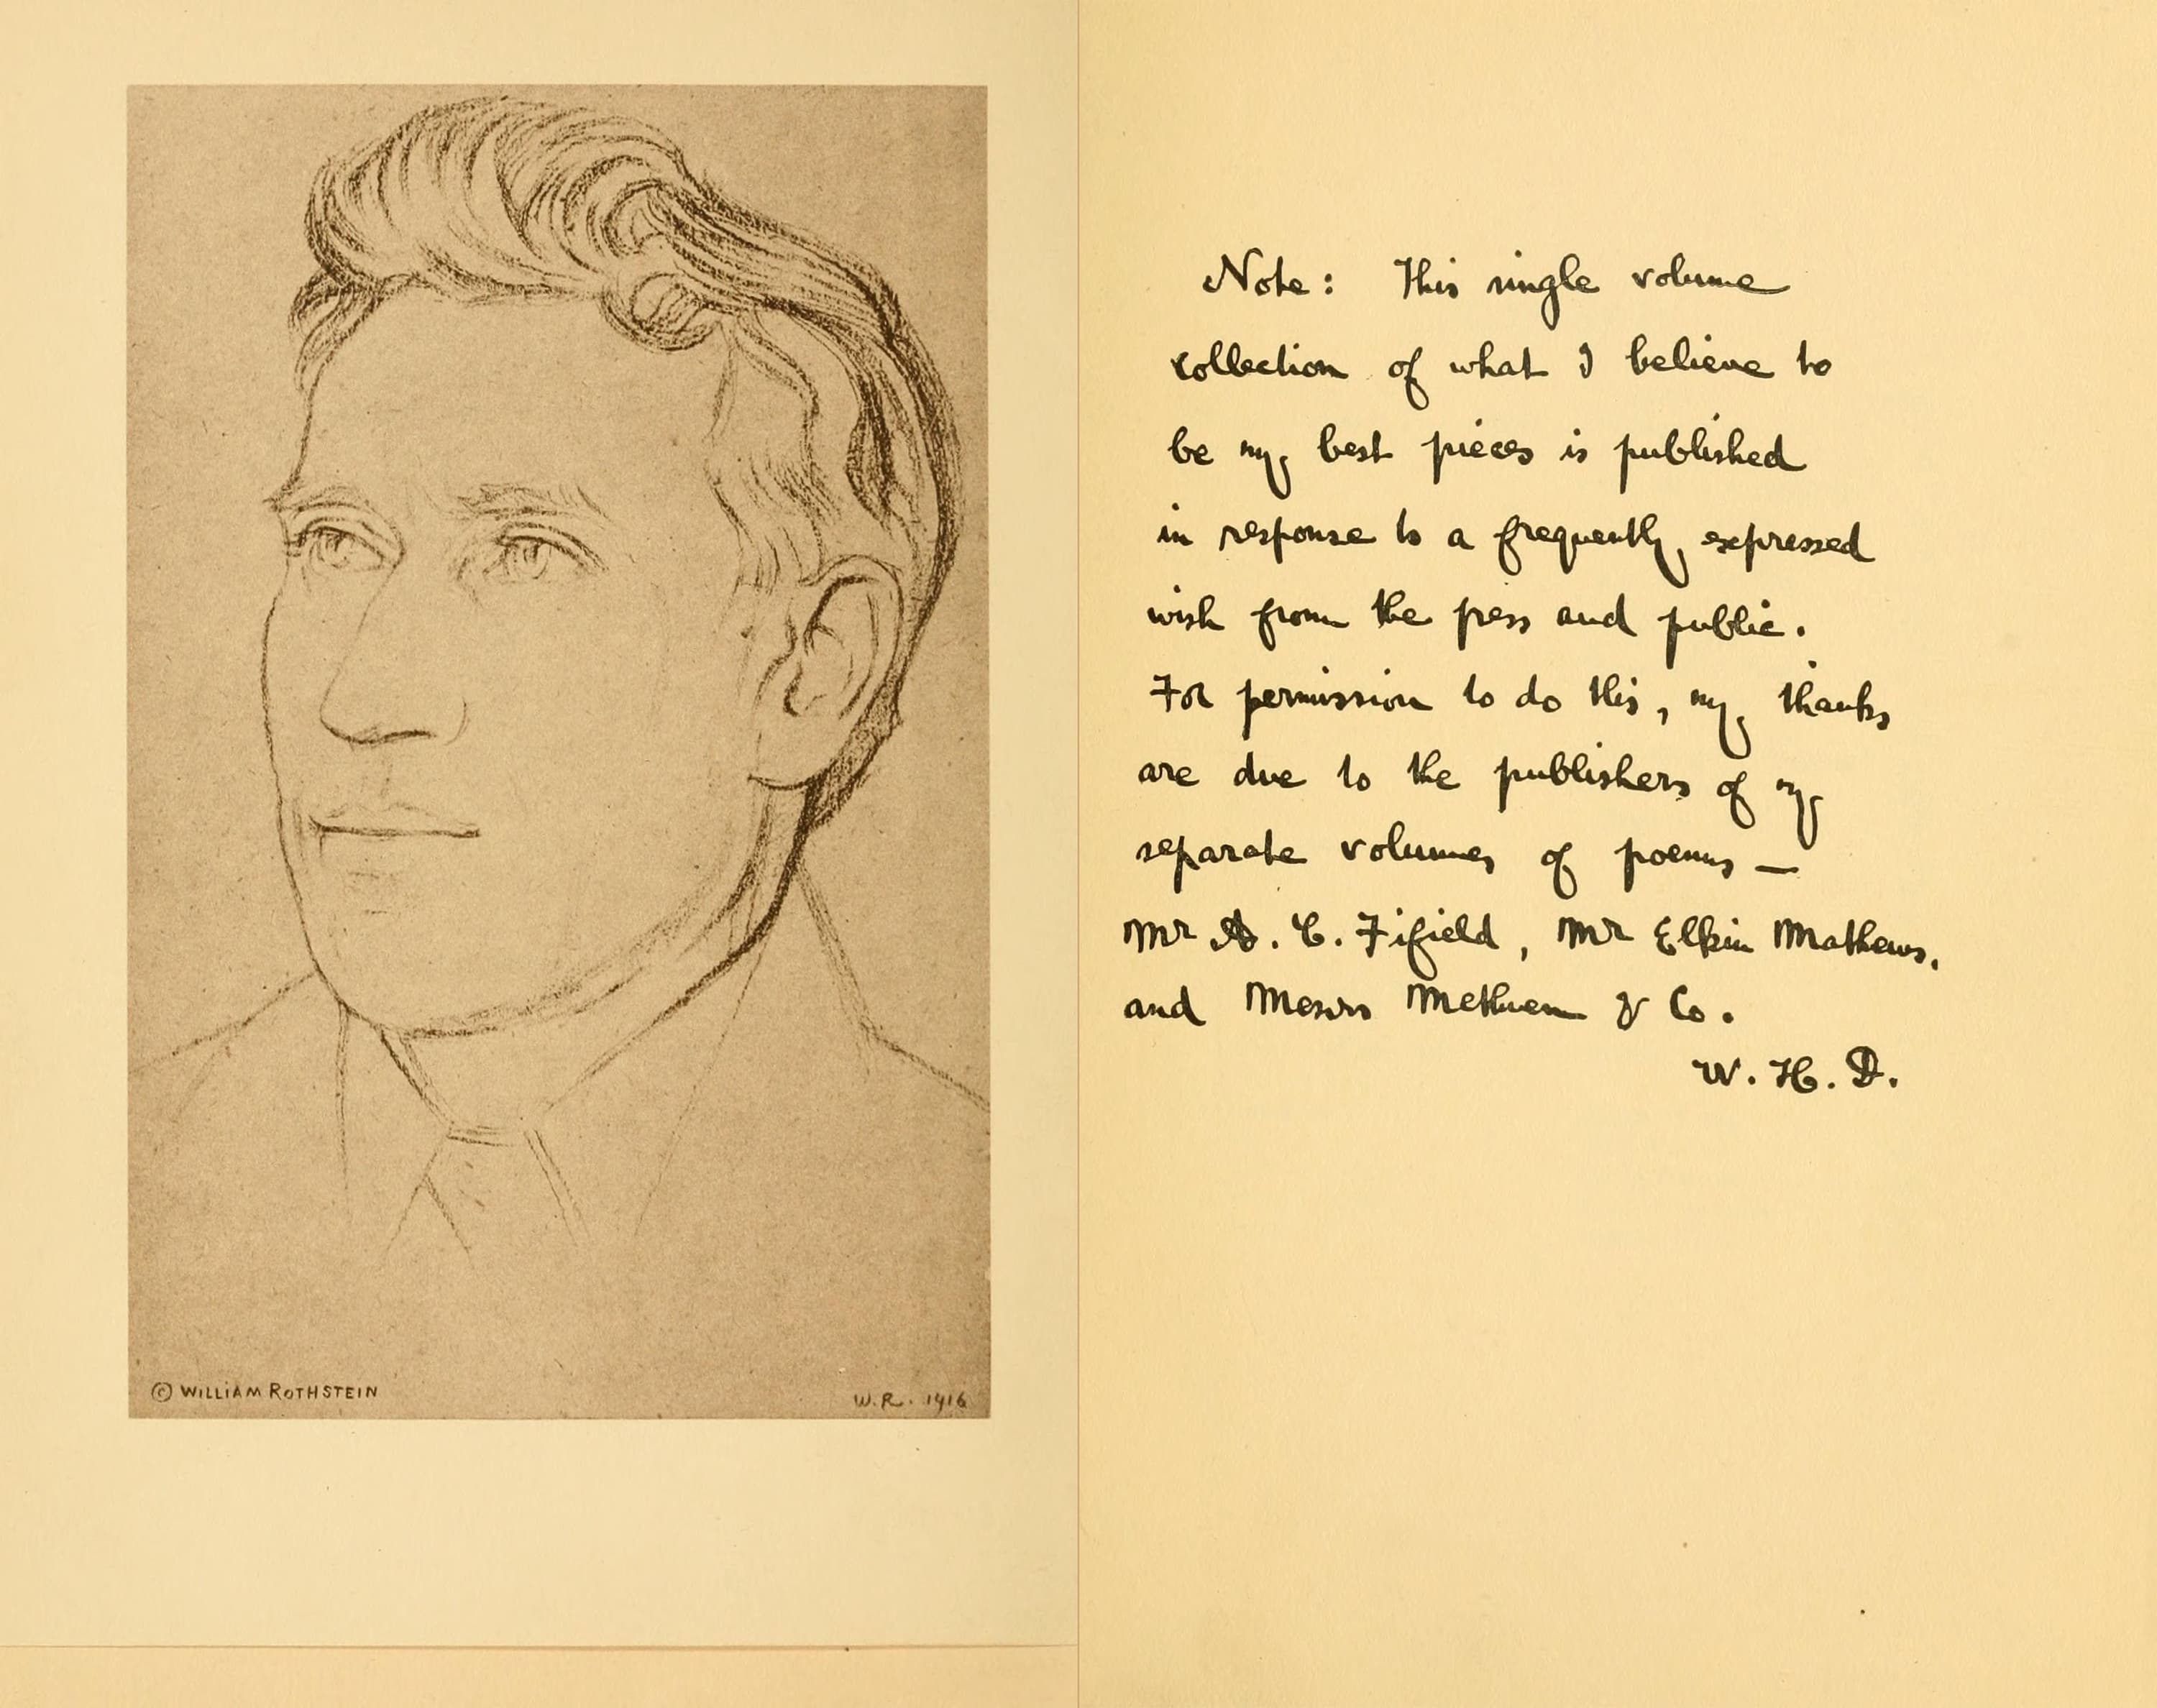 © WILLIAM ROTHSTEIN
W.R. 1916
Note: This single volume
collection of what I believe to
be my best pieces is published
in response to a frequently expressed
wish from the press and public.
For permission to do this, my thanks
are due to the publishers of my
separate volumes of poems —
Mr A. C. Fifield, Mr Elkin Mathews,
and Messrs Methuen & Co.
W. H. D.